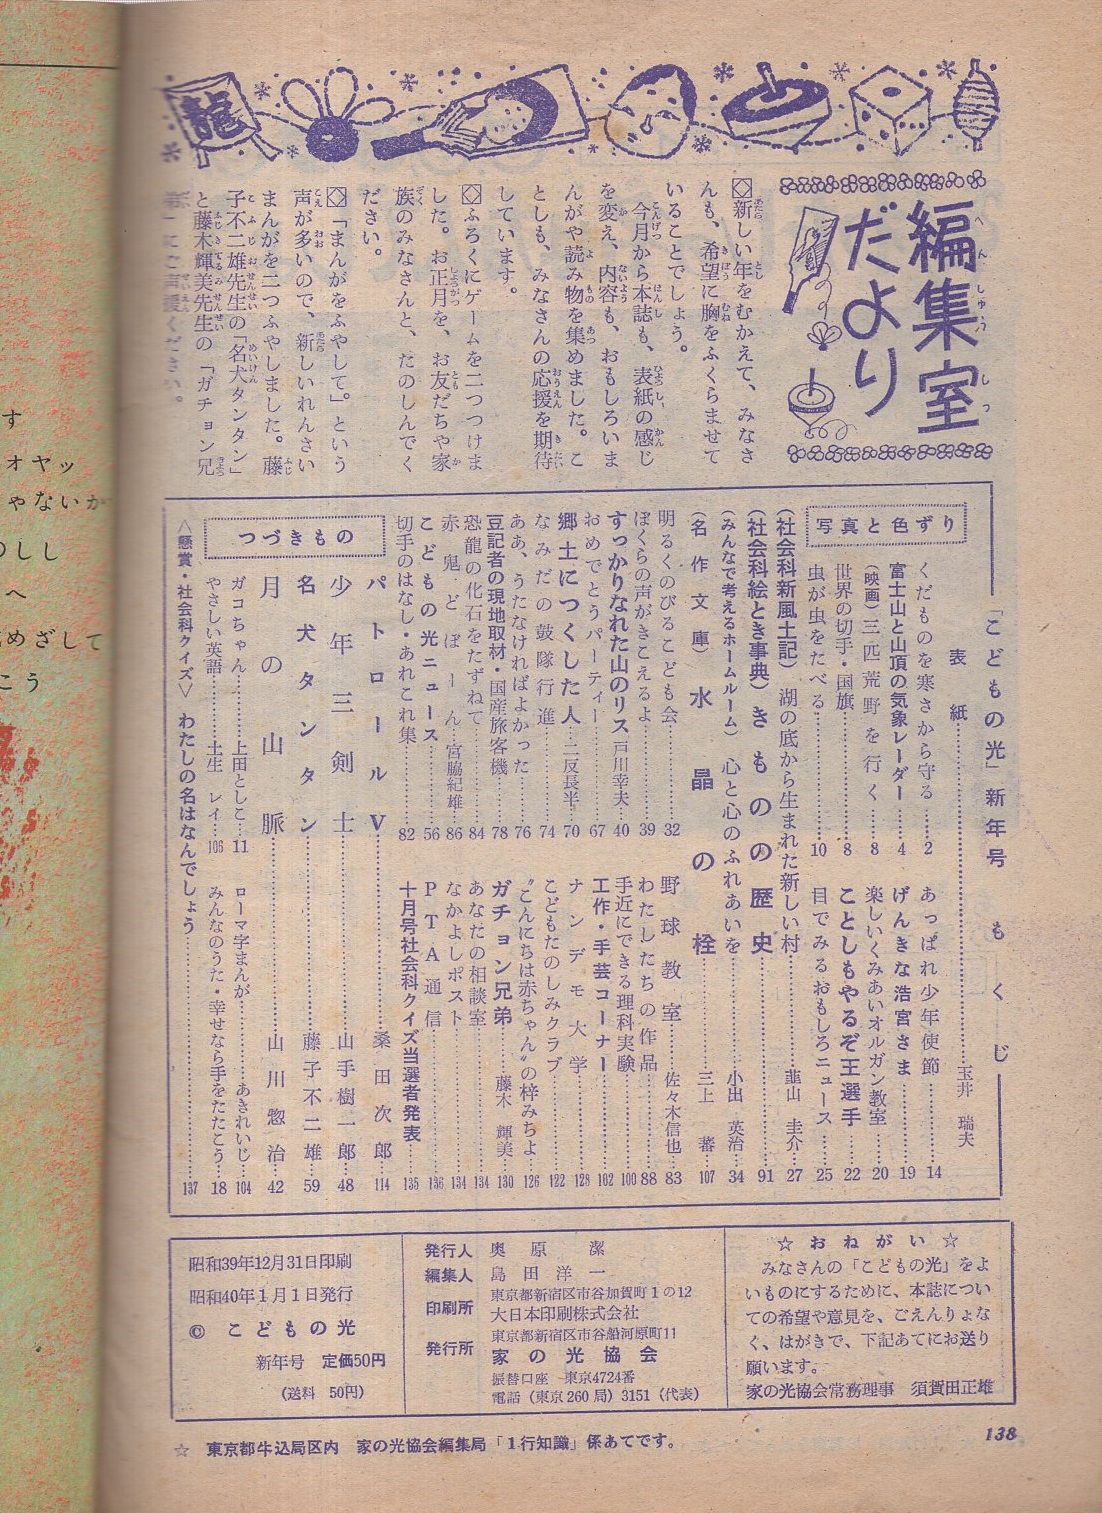 龍
編集室
だより
へんしゅうしつ
◇新しい年をむかえて、みなさ
んも、希望に胸をふくらませて
いることでしょう。
今月から本誌も、表紙の感じ
を変え、内容も、おもしろいま
んがや読み物を集めました。こ
としも、みなさんの応援を期待
しています。
◇ふろくにゲームを二つつけま
した。お正月を、お友だちや家
族のみなさんと、たのしんでく
ださい。
◇「まんがをふやして。」という
声が多いので、新しいれんさい
まんがを二つふやしました。藤
子不二雄先生の「名犬タンタン」
と藤木輝美先生の「ガチョン兄
弟」にご声援ください。
「こどもの光」新年号 もくじ
表紙……玉井 瑞夫
写真と色ずり
くだものを寒さから守る……2
富士山と山頂の気象レーダー……4
(映画)三匹荒野を行く……8
世界の切手・国旗……8
虫が虫をたべる……10
あっぱれ少年使節……14
げんきな浩宮さま……19
楽しいくみあいオルガン教室……20
ことしもやるぞ王選手……22
目でみるおもしろニュース……25
(社会科新風土記) 湖の底から生まれた新しい村……韮山 圭介…27
(社会科絵とき事典) きものの歴史……91
(みんなで考えるホームルーム) 心と心のふれあいを……小出 英治…34
(名作文庫) 水晶の栓……三上 蕃…107
明るくのびるこども会……32
ぼくらの声がきこえるよ……39
すっかりなれた山のリス…戸川幸夫…40
おめでとうパーティー……67
郷土につくした人……二反長半…70
なみだの鼓隊行進……74
ああ、うたなければよかった……76
豆記者の現地取材・国産旅客機……78
恐龍の化石をたずねて……84
赤鬼どぼーん…宮脇紀雄…86
こどもの光ニュース……56
切手のはなし・あれこれ集……82
野球教室……佐々木信也…83
わたしたちの作品……88
手近にできる理科実験……100
工作・手芸コーナー……102
ナンデモ大学……128
こどもたのしみクラブ……122
"こんにちは赤ちゃん"の梓みちよ……126
ガチョン兄弟……藤木 輝美…130
あなたの相談室……134
なかよしポスト……134
PTA通信……136
十月号社会科クイズ当選者発表……135
つづきもの
パトロールV……桑田次郎 114
少年三剣士……山手樹一郎…48
名犬タンタン……藤子不二雄…59
月の山脈……山川惣治 42
ガコちゃん……上田としこ…11
やさしい英語……土生 レイ…106
ローマ字まんが……あきれいじ…104
みんなのうた・幸せなら手をたたこう…18
<懸賞・社会科クイズ> わたしの名はなんでしょう……137
昭和39年12月31日印刷
昭和40年1月1日発行
© こどもの光
新年号 定価50円
(送料 50円)
発行人 奥原 潔
編集人 島田洋一
印刷所 東京都新宿区市谷加賀町1の12
大日本印刷株式会社
発行所 東京都新宿区市谷船河原町11
家の光協会
振替口座 東京4724番
電話(東京260局)3151(代表)
☆ おねがい ☆
みなさんの「こどもの光」をよ
いものにするために、本誌につい
ての希望や意見を、ごえんりょな
く、はがきで、下記あてにお送り
願います。
家の光協会常務理事 須賀田正雄
☆ 東京都牛込局区内 家の光協会編集局「1行知識」係あてです。
138
す
オヤッ
ゃないか
のしし
へ
めざして
こう